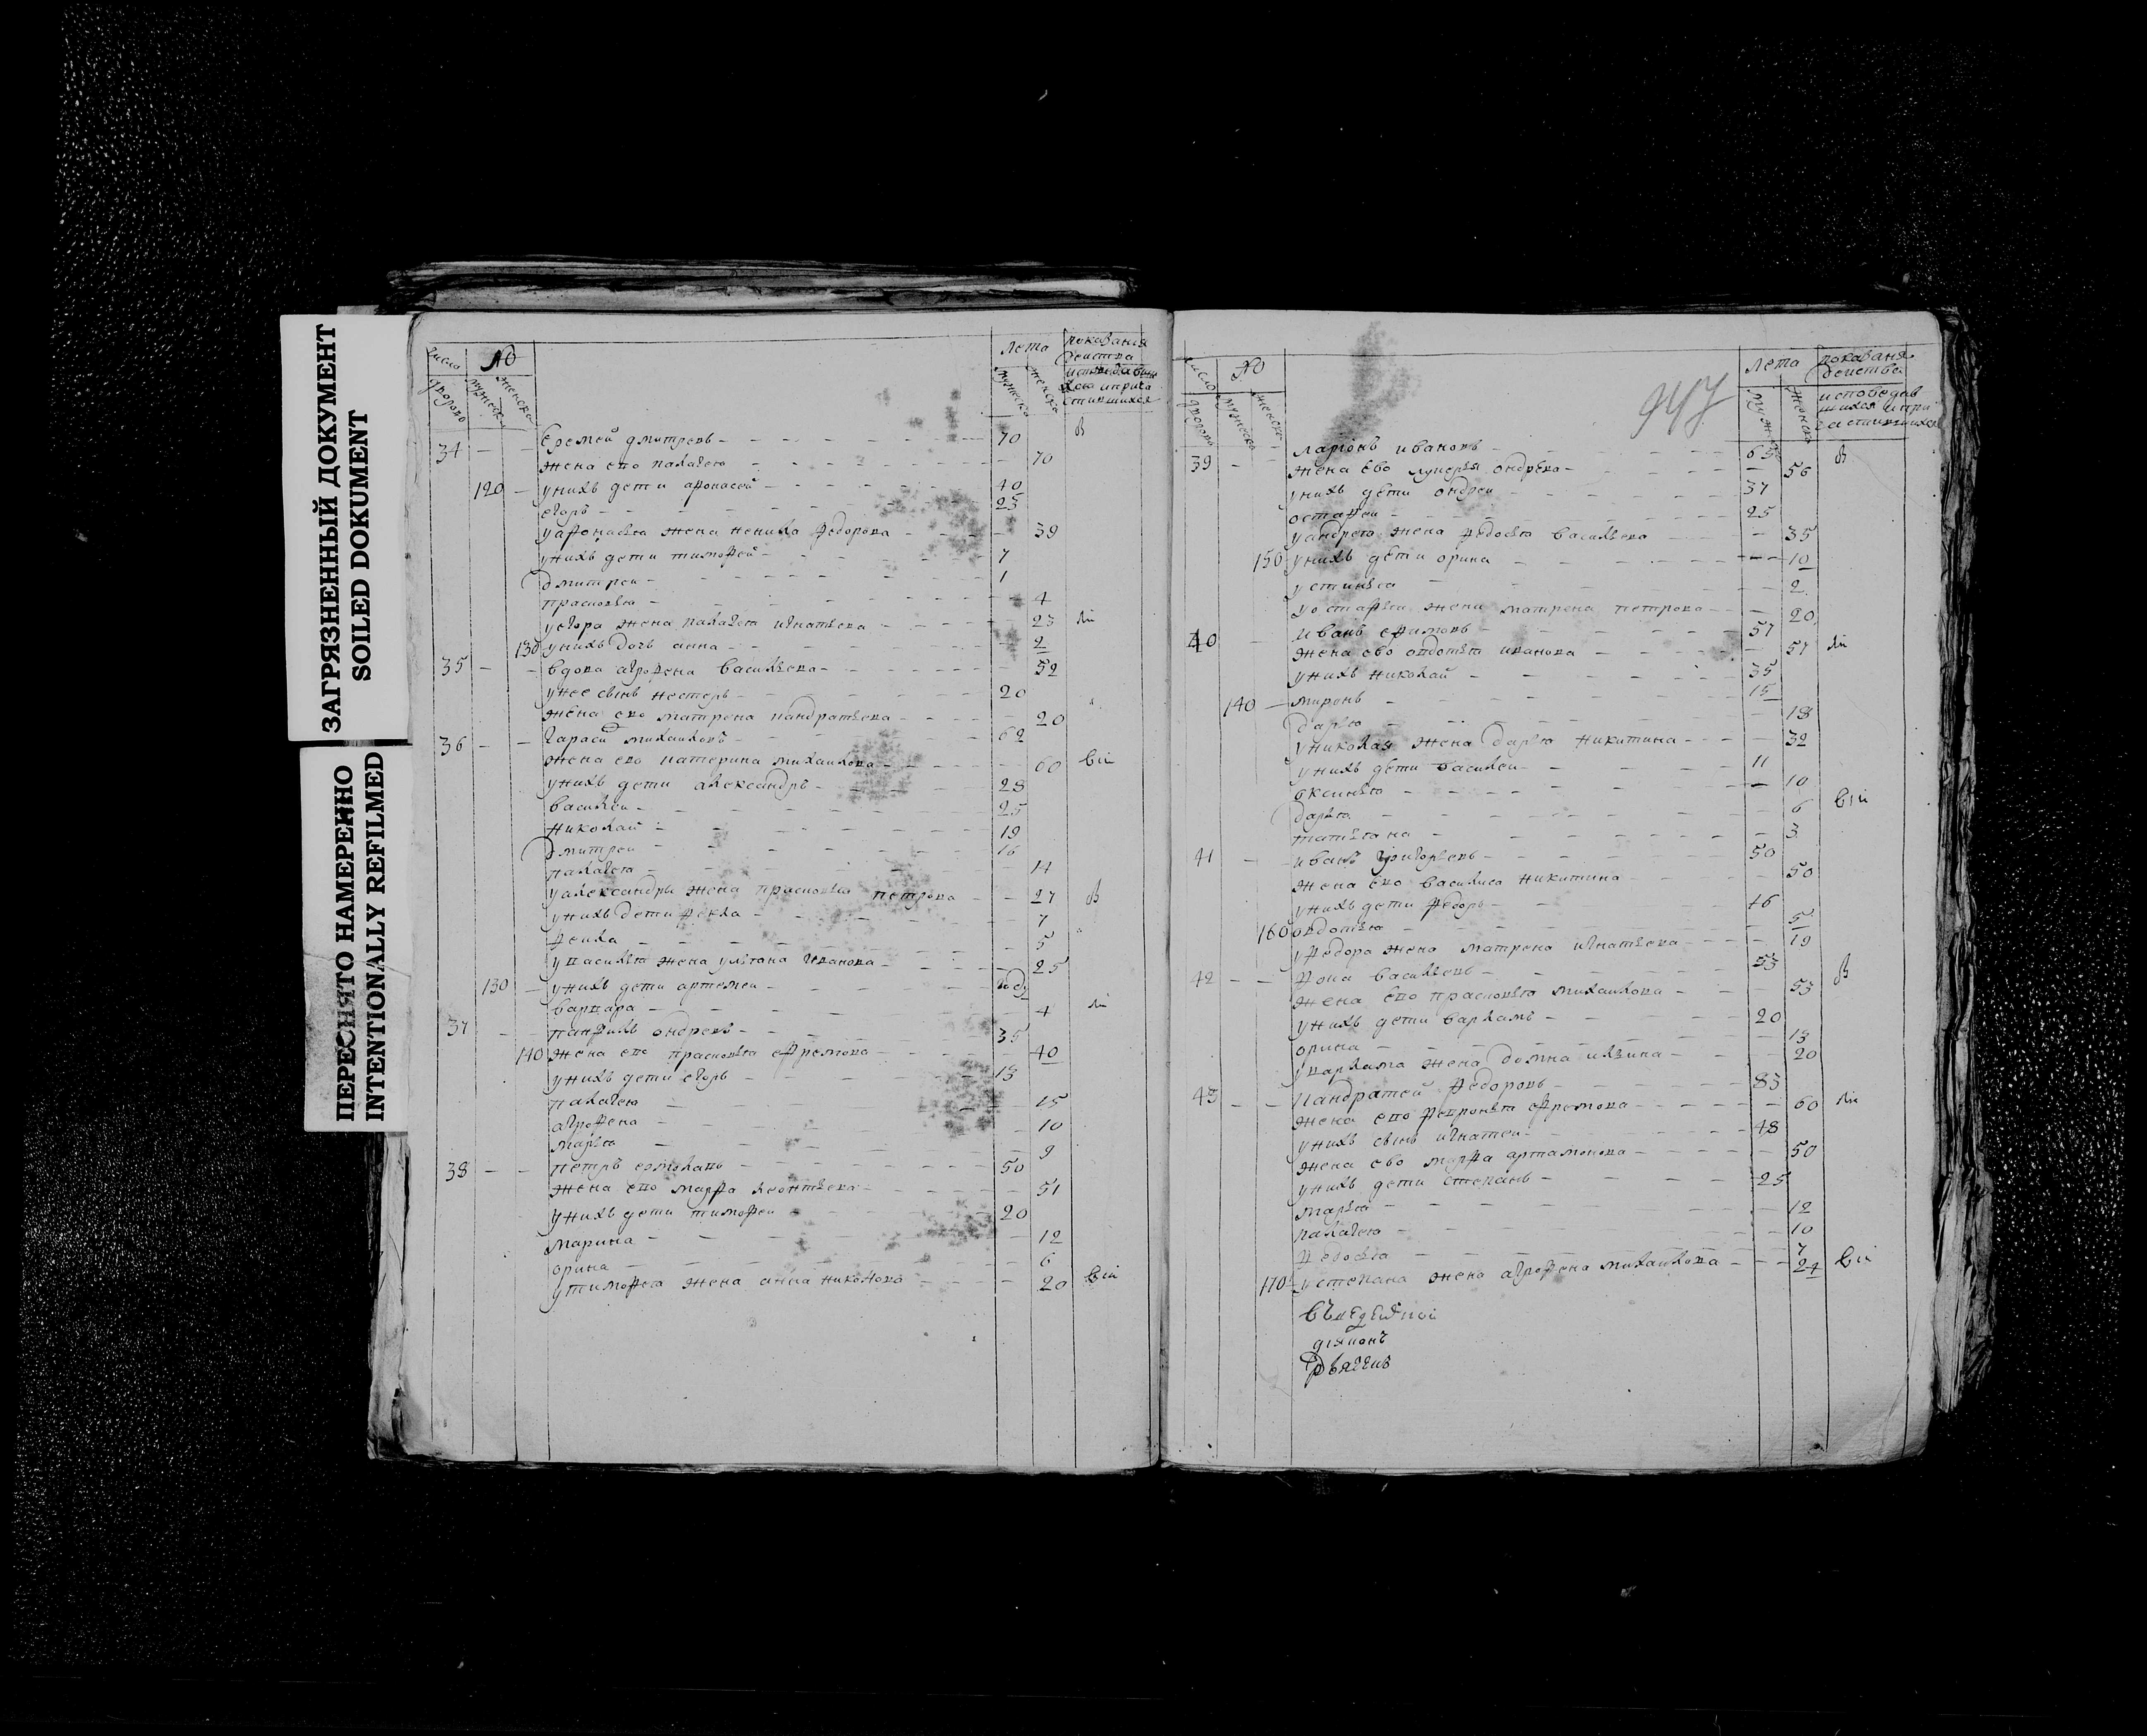 ЗАГРЯЗНЕННЫЙ ДОКУМЕНТ
SOILED DOKUMENT
ПЕРЕСНЯТО НАМЕРЕННО
INTENTIONALLY REFILMED
число № лета показания
дворовъ мужеска женска мужеска женска действа
34 Еремей дмитревъ 70 В
жена ево палагея 70
120 у нихъ дети афонасей 40
егоръ 25
у афонасея жена ненила федорова 39
у нихъ дети тимофей 7
дмитреи 1
прасковея 4
у егора жена палагея игнатьева 23
130 у нихъ дочь анна 2
35 вдова агрофена васильева 52
у нее сынъ нестеръ 20
жена ево матрена кандратьева 20
36 гарасй михаиловъ 62
жена ево катерина михаилова 60
у нихъ дети александръ 28
василеи 25
николай 19
дмитреи 16
палагея 14
у александры жена прасковея петрова 27 В
у нихъ дети фекла 7
5
у василея жена ульяна иванова 25
130 у нихъ дети артемеи
варвара 4
37 панфилъ ондревъ 35
140 жена ево прасковея ефремова 40
у нихъ дети егоръ 13
палагея 15
агрофена 10
марея 9
38 петръ ермолаевъ 50
жена ево марфа леонтьева 51
у нихъ дети тимофеи 20
марина 12
орина 6
у тимофея жена анна никонова 20
947
число № лета показаня
дворовъ мужеска женска действа
исповедав
шихся и при
частившихся
39 ларионъ ивановъ 65 В
жена ево лукерья ондрева 56
у нихъ дети ондреи 37
остафеи 25
у андрея жена федосея васильева 35
150 у нихъ дети орина 10
устинея 2
у остафеи жена матрена петрова 20
40 иванъ ефимовъ 57
жена ево овдотея иванова 57
у нихъ николай 35
140 миронъ 15
дарея 18
у николая жена дарея никитина 32
у нихъ дети василеи 11
оксинея 10
дарея 6
татеяна 3
41 иванъ григорьевъ 50
жена ево василиса никитина 50
у нихъ дети федоръ 16
160 овдотея 5
у федора жена матрена игнатьева 19
42 фока васильевъ 53 В
жена ево прасковея михаилова 53
у нихъ дети варламъ 20
орина 13
у варлама жена домна илвина 20
43 кандратей федоровъ 83
жена ево февронея ефремова 60
у нихъ сынъ игнатеи 48
жена ево марфа артамонова 50
у нихъ дети степанъ 25
марея 12
палагея 10
федосея 7
170 у степана жена агрофена михаилова 24